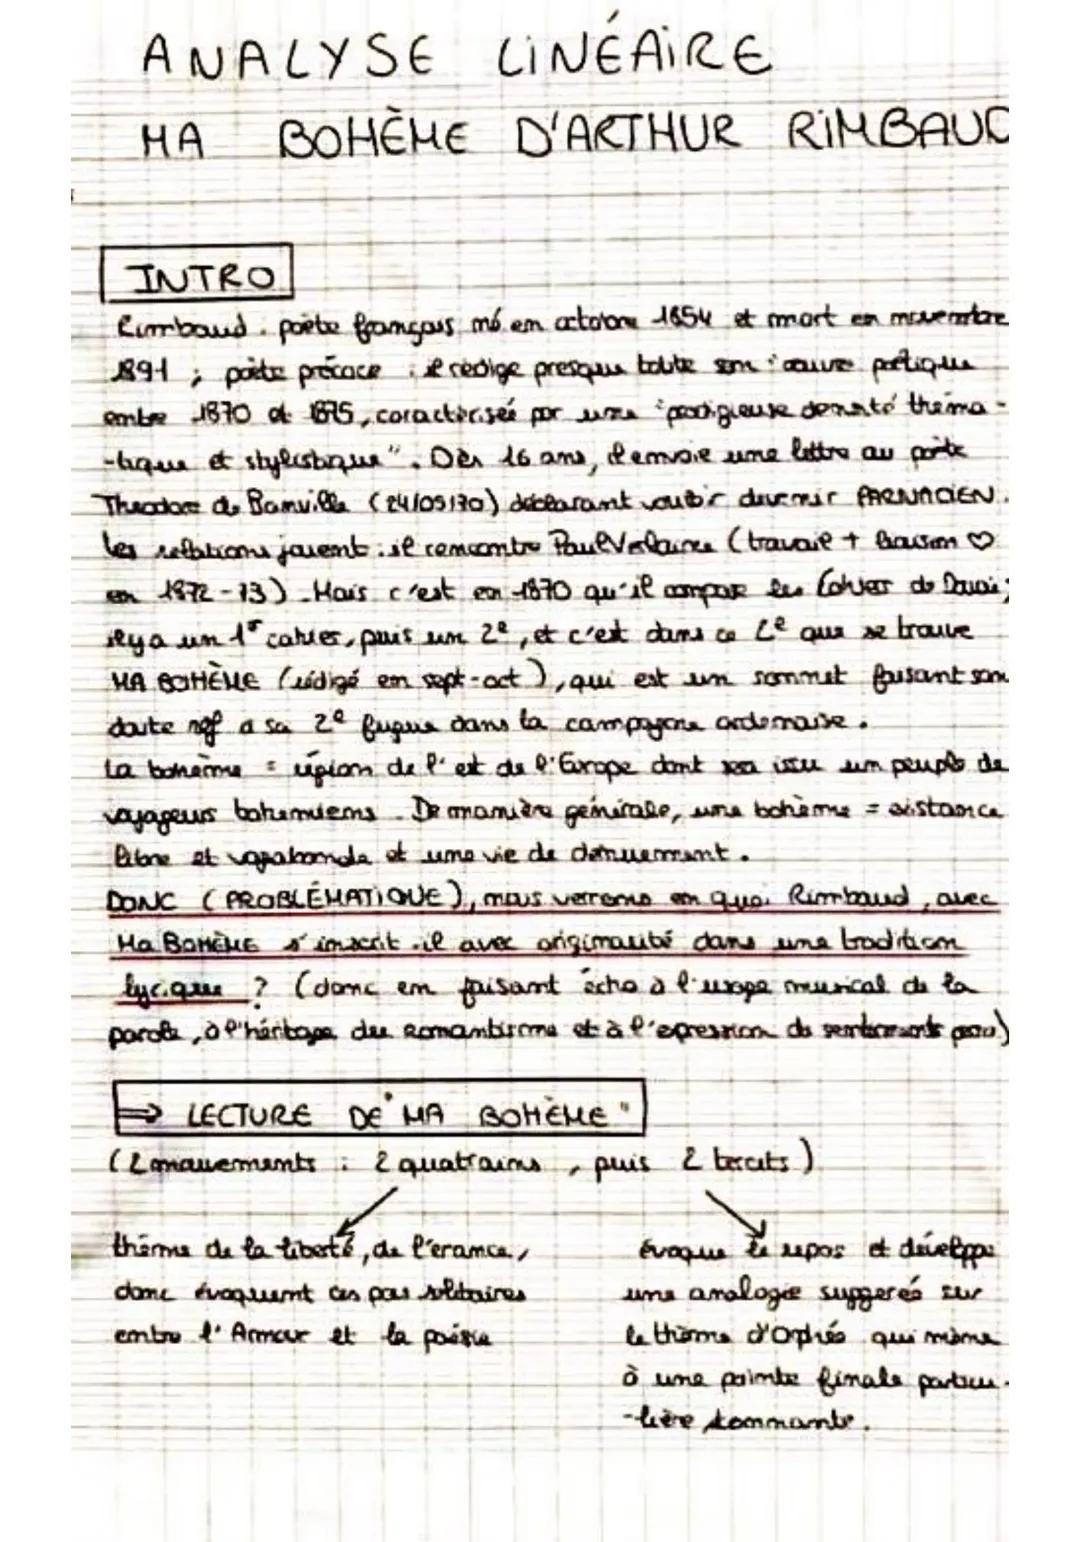 ANALYSE LINÉAIRE
MA BOHÈME D'ARTHUR RIMBAUD
INTRO
Rimbaud. poète français né en octobre 1854 et mort en novembre
1891 ; poète précoce : il rédige presque toute son œuvre poétique
entre 1870 et 1875, caractérisée par une "prodigieuse densité théma-
-tique et stylistique". Dès 16 ans, il envoie une lettre au poète
Theodore de Banville (24/05/70) déclarant vouloir devenir PARNACIEN.
Les relations jouent : il rencontre Paul Verlaine (travail + liaison ♡
en 1872-73). Mais c'est en 1870 qu'il compose les Cahiers de Douai ;
il y a un 1er cahier, puis un 2e, et c'est dans ce 2e que se trouve
MA BOHÈME (rédigé en sept-oct), qui est un sonnet faisant sans
doute réf a sa 2e fugue dans la campagne ardennaise.
La bohème = région de l'est de l'Europe dont est issu un peuple de
voyageurs bohemiens. De manière générale, une bohème = existance
libre et vagabonde et une vie de dénuement.
DONC (PROBLÉMATIQUE), nous verrons en quoi Rimbaud, avec
Ma BOHÈME s'inscrit-il avec originalité dans une tradition
lyrique ? (donc en faisant écho à l'usage musical de la
parole, à l'héritage du romantisme et à l'expression de sentiments perso)
⇒ LECTURE DE "MA BOHÈME"
(2 mouvements : 2 quatrains, puis 2 tercets)
thème de la liberté, de l'erance,
donc évoquent ces pas solitaires
entre l'Amour et la poésie
évoque le repos et développe
une analogie suggerée sur
le thème d'Orphée qui mène
à une pointe finale particu-
-lière étonnante.